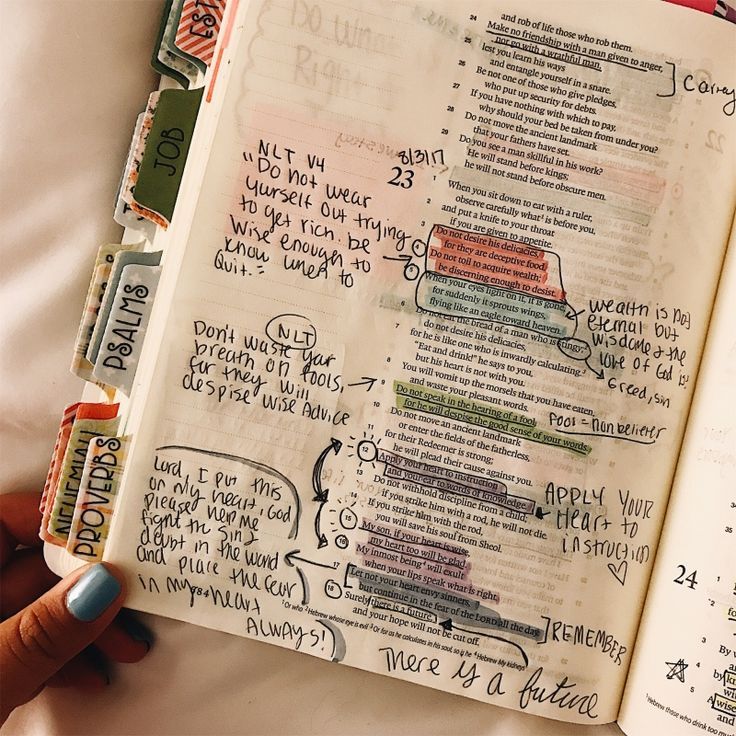 EST
JOB
PSALMS
NEHEMIAH
PROVERBS
24 and rob of life those who rob them.
Make no friendship with a man given to anger,
25 nor go with a wrathful man,
lest you learn his ways
26 and entangle yourself in a snare.
Be not one of those who give pledges,
27 who put up security for debts.
If you have nothing with which to pay,
28 why should your bed be taken from under you?
Do not move the ancient landmark
29 that your fathers have set.
Do you see a man skillful in his work?
He will stand before kings;
he will not stand before obscure men.
Carrey
22
8/3/17
23
1 When you sit down to eat with a ruler,
2 observe carefully what¹ is before you,
and put a knife to your throat
3 if you are given to appetite.
Do not desire his delicacies,
4 for they are deceptive food.
Do not toil to acquire wealth;
5 be discerning enough to desist.
When your eyes light on it, it is gone,
for suddenly it sprouts wings,
6 flying like an eagle toward heaven.
Do not eat the bread of a man who is stingy;²
7 do not desire his delicacies,
for he is like one who is inwardly calculating.³
"Eat and drink!" he says to you,
8 but his heart is not with you.
You will vomit up the morsels that you have eaten,
9 and waste your pleasant words.
Do not speak in the hearing of a fool,
10 for he will despise the good sense of your words.
Do not move an ancient landmark
11 or enter the fields of the fatherless,
for their Redeemer is strong;
12 he will plead their cause against you.
Apply your heart to instruction
13 and your ear to words of knowledge.
Do not withhold discipline from a child;
14 if you strike him with a rod, he will not die.
If you strike him with the rod,
15 you will save his soul from Sheol.
My son, if your heart is wise,
16 my heart too will be glad.
My inmost being⁴ will exult
17 when your lips speak what is right.
Let not your heart envy sinners,
18 but continue in the fear of the LORD all the day.
Surely there is a future,
and your hope will not be cut off.
NLT V4
"Do not wear
yourself out trying
to get rich. be
wise enough to
know when to
Quit."
NLT
Don't waste your
breath on fools,
for they will
despise wise advice
Lord I put this
on my heart, God
please help me
fight the sin &
debt in the world
and place the fear
in my heart
ALWAYS!
784
wealth is not
eternal but
wisdom & the
love of God is!
greed, sin
Fool = nonbeliever
APPLY YOUR
Heart to
instruction
REMEMBER
There is a future
¹ Or who ² Hebrew whose eye is evil ³ Or for as he calculates in his soul, so is he ⁴ Hebrew My kidneys
24